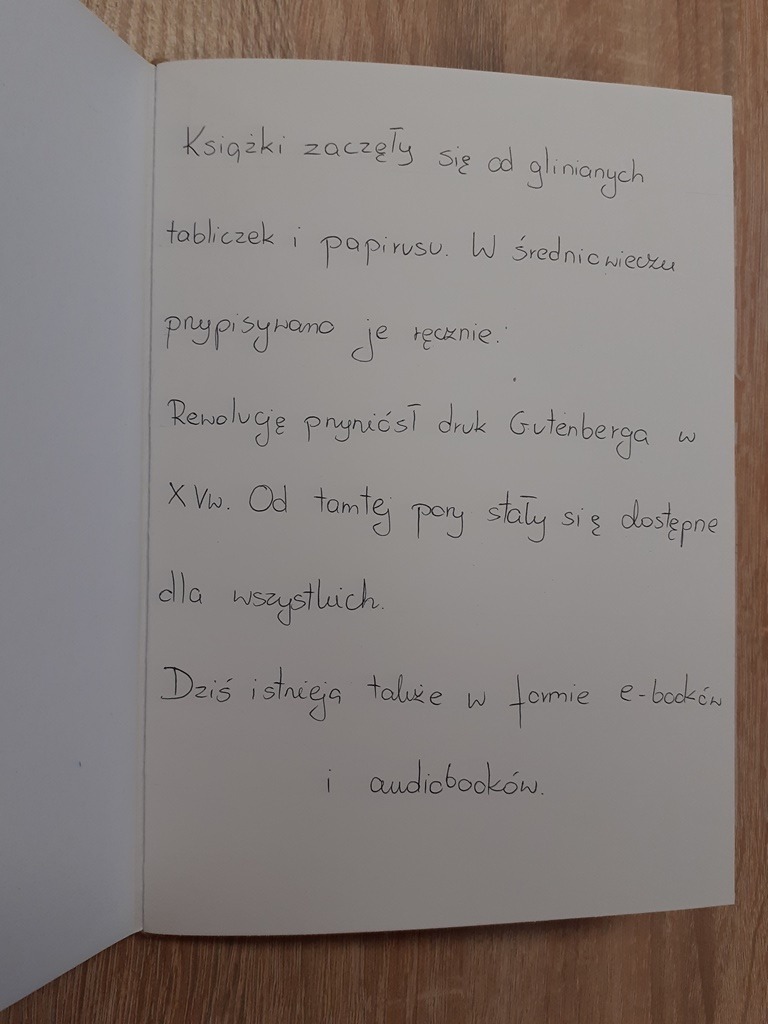 Książki zaczęły się od glinianych
tabliczek i papirusu. W średniowieczu
przypisywano je ręcznie.
Rewolucję przyniósł druk Gutenberga w
XVw. Od tamtej pory stały się dostępne
dla wszystkich.
Dziś istnieją także w formie e-booków
i audiobooków.